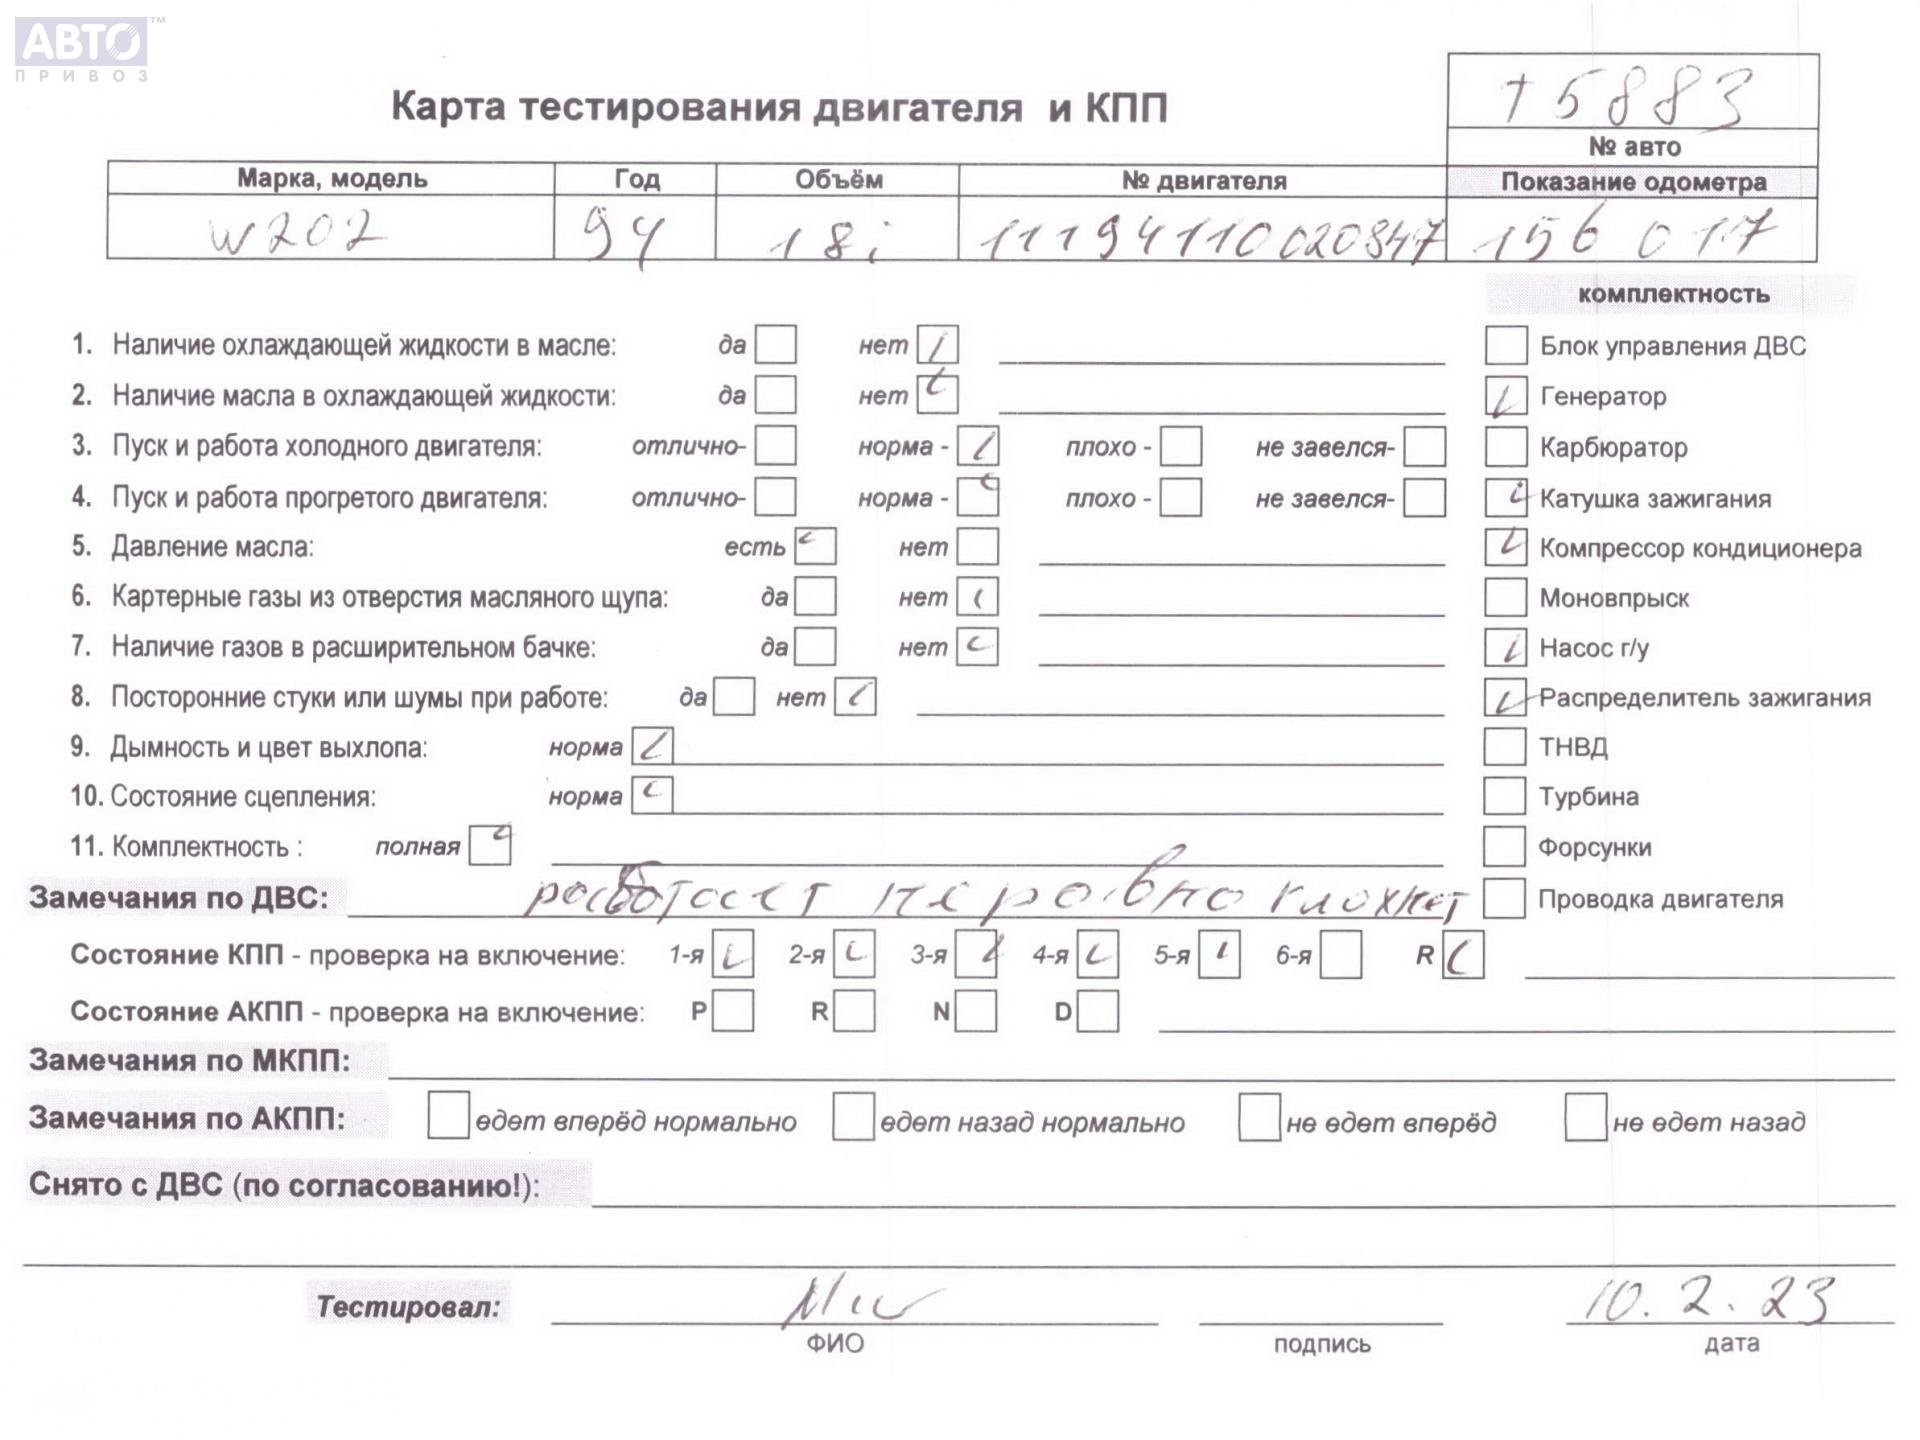 АВТО™
ПРИВОЗ
Карта тестирования двигателя и КПП
т5883
№ авто
Марка, модель Год Объём № двигателя Показание одометра
W202 94 18i 11194110020847 156 017
комплектность
1. Наличие охлаждающей жидкости в масле: да нет Блок управления ДВС
2. Наличие масла в охлаждающей жидкости: да нет Генератор
3. Пуск и работа холодного двигателя: отлично- норма - плохо - не завелся- Карбюратор
4. Пуск и работа прогретого двигателя: отлично- норма - плохо - не завелся- Катушка зажигания
5. Давление масла: есть нет Компрессор кондиционера
6. Картерные газы из отверстия масляного щупа: да нет Моновпрыск
7. Наличие газов в расширительном бачке: да нет Насос г/у
8. Посторонние стуки или шумы при работе: да нет Распределитель зажигания
9. Дымность и цвет выхлопа: норма ТНВД
10. Состояние сцепления: норма Турбина
11. Комплектность : полная Форсунки
Замечания по ДВС: работает неровно глохнет Проводка двигателя
Состояние КПП - проверка на включение: 1-я 2-я 3-я 4-я 5-я 6-я R
Состояние АКПП - проверка на включение: P R N D
Замечания по МКПП:
Замечания по АКПП: едет вперёд нормально едет назад нормально не едет вперёд не едет назад
Снято с ДВС (по согласованию!):
Тестировал: 10.2.23
ФИО подпись дата